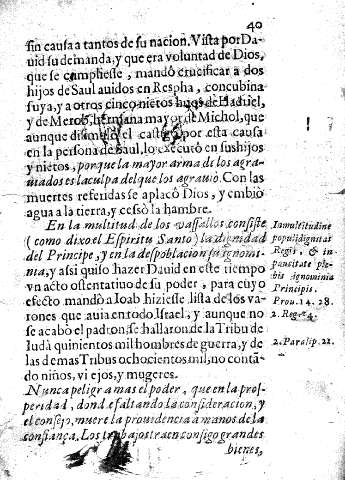 40
sin causa a tantos de su nacion. Vista por Da-
uid su demanda, y que era voluntad de Dios,
que se cumpliesse, mandò crucificar a dos
hijos de Saul auidos en Respha, concubina
suya, y a otros cinco nietos hijos de
y de Merob, hermana mayor de Michol, que
aunque el por esta causa
en la persona de Saul, lo executò en sus hijos
y nietos, porque la mayor arma de los agra-
uiados es la culpa del que los agrauiò. Con las
muertes referidas se aplacò Dios, y embiò
agua a la tierra, y cessò la hambre.
En la multitud de los vassallos consiste
(como dixo el Espiritu Santo) la dignidad
del Principe, y en la despoblacion su ignomi-
nia, y assi quiso hazer Dauid en este tiempo
vn acto ostentatiuo de su poder, para cuyo
efecto mandò a Ioab hiziesse lista de los va-
rones que auia en todo Israel, y aunque no
se acabò el padron, se hallaron de la Tribu de
Iudà quinientos mil hombres de guerra, y de
las demas Tribus ochocientos mil, no contã-
do niños, viejos, y mugeres.
Nunca peligra mas el poder, que en la pros-
peridad, donde faltando la consideracion, y
el consejo, muere la prouidencia à manos de la
confiança. Los trabajos traen consigo grandes
bienes,
In multitudine
populi dignitas
Regis, & in
paucitate ple-
bis ignominia
Principis.
Prou. 14. 28.
2. Reg.
2. Paralip. 22.